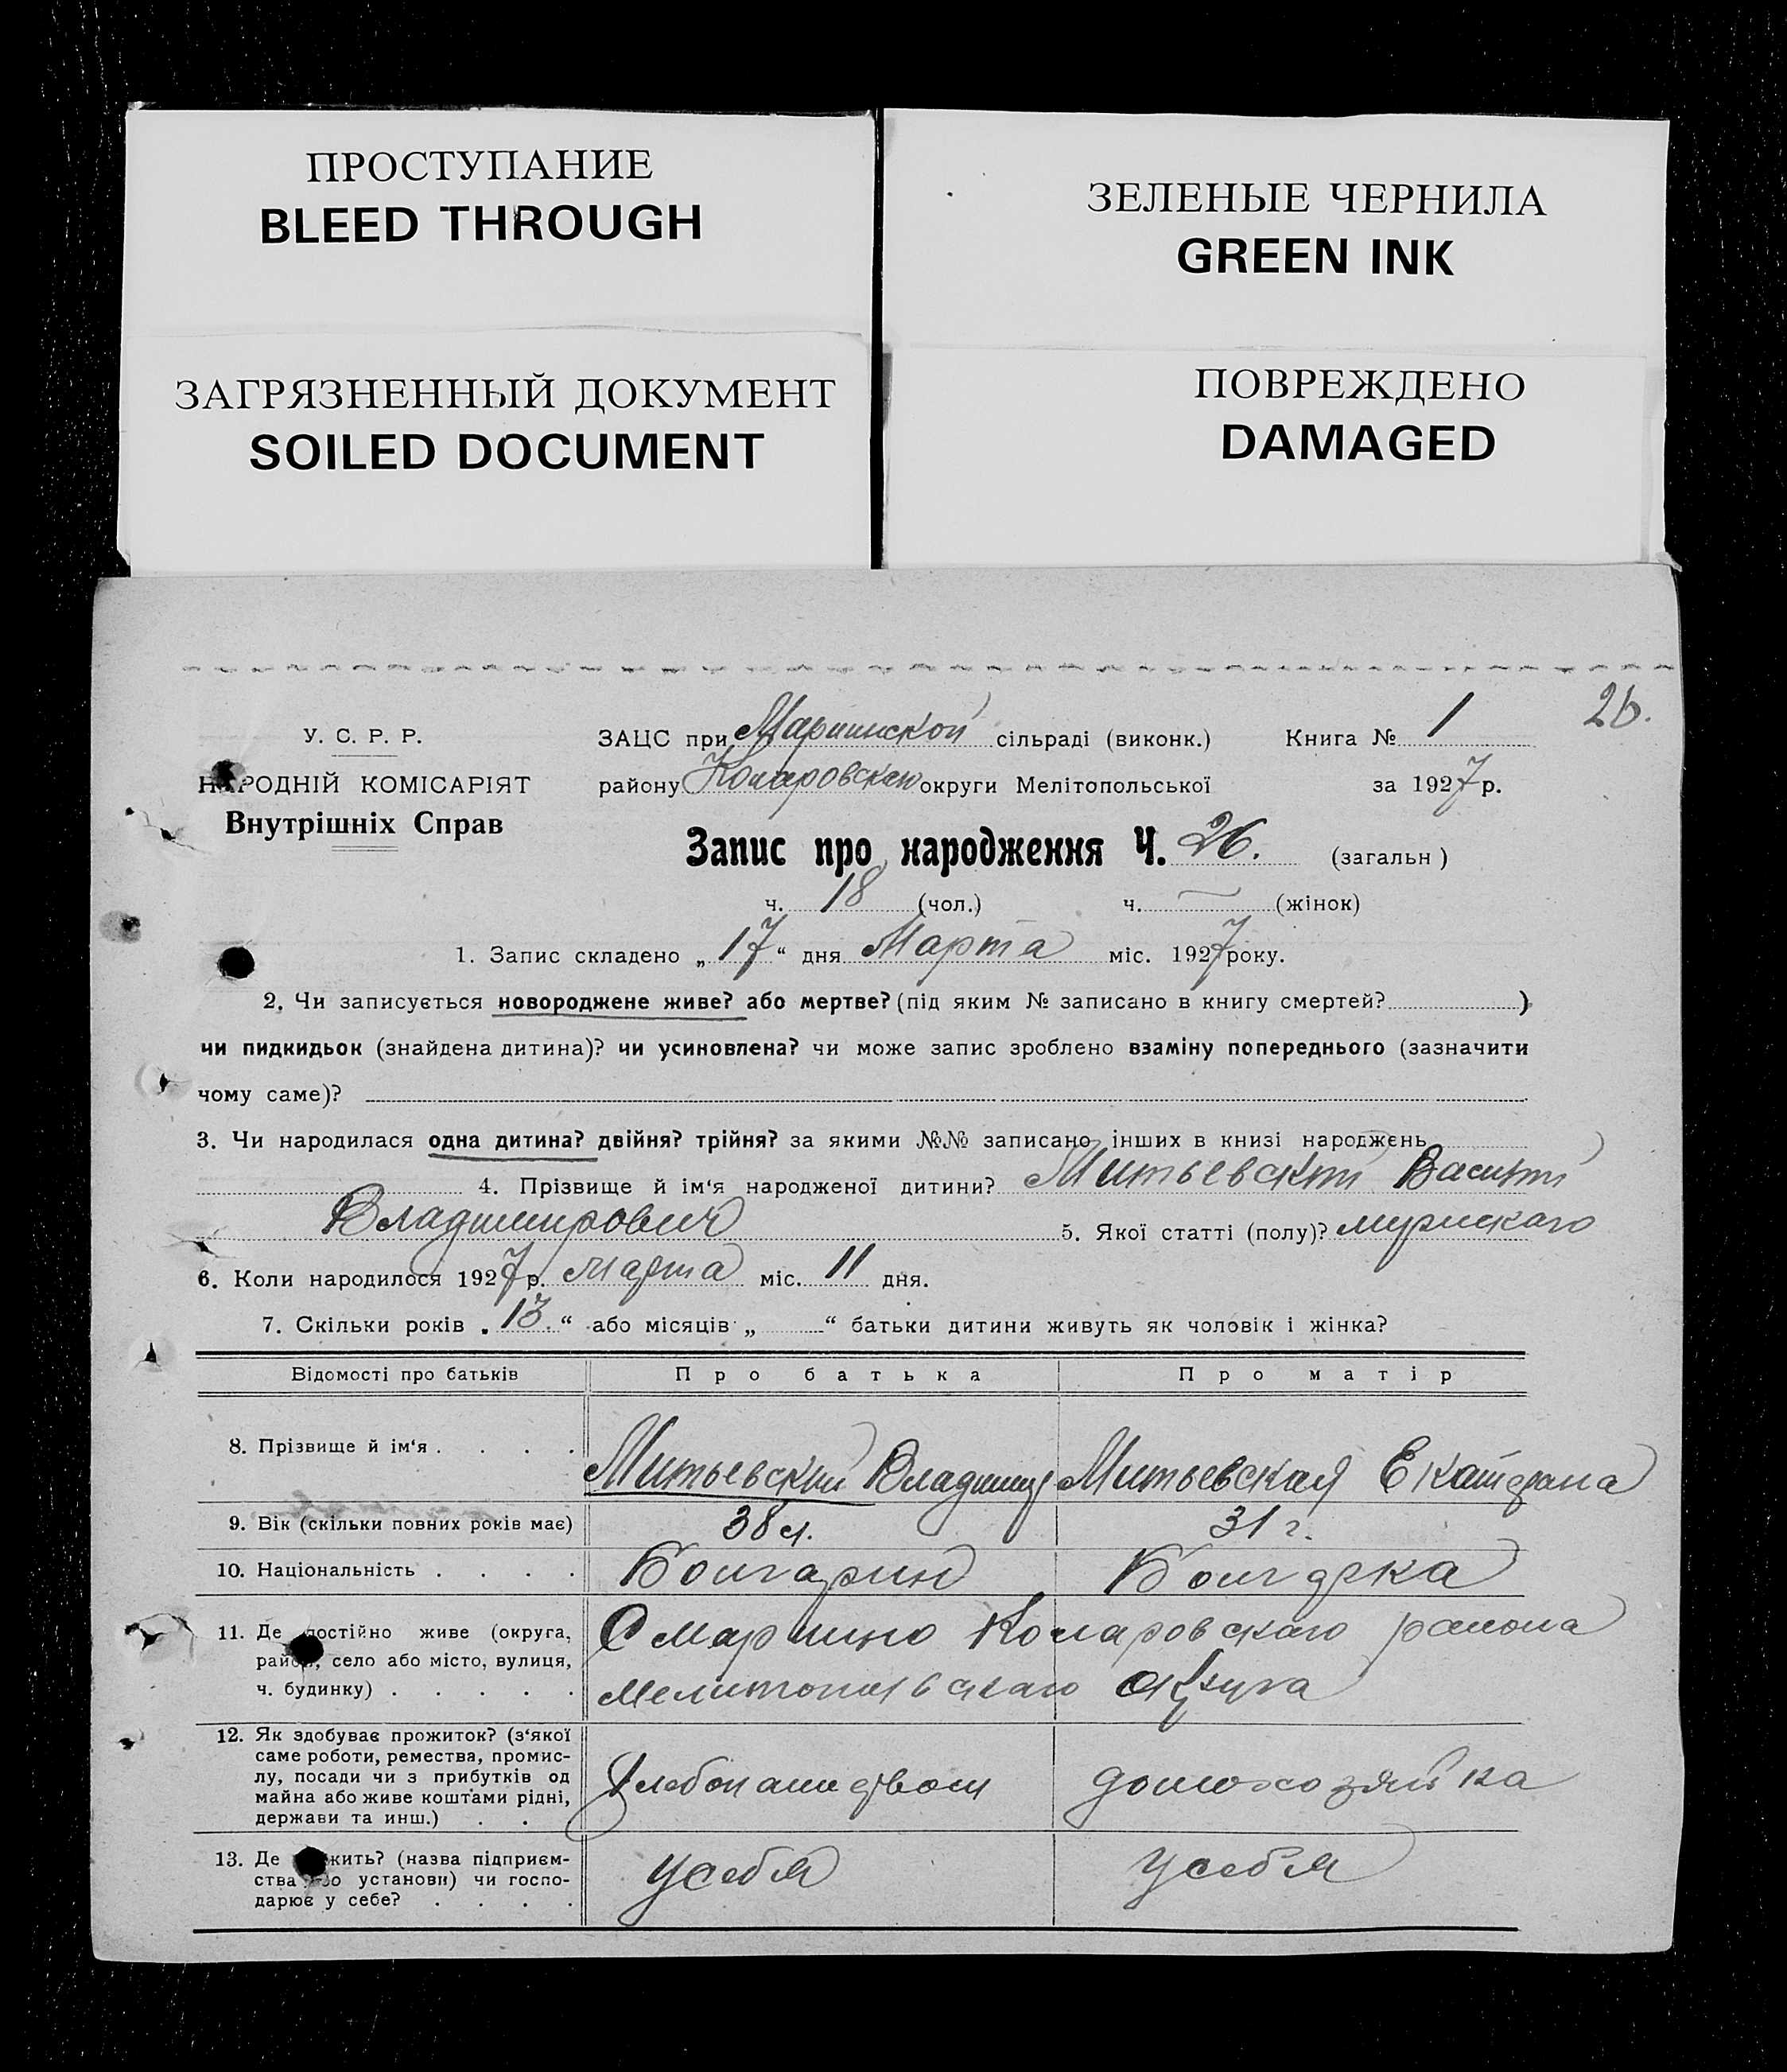 ПРОСТУПАНИЕ
BLEED THROUGH
ЗЕЛЕНЫЕ ЧЕРНИЛА
GREEN INK
ЗАГРЯЗНЕННЫЙ ДОКУМЕНТ
SOILED DOCUMENT
ПОВРЕЖДЕНО
DAMAGED
26.
У. С. Р. Р.
НАРОДНІЙ КОМІСАРІЯТ
Внутрішніх Справ
ЗАЦС при Мариинской сільраді (виконк.) Книга № 1
району Коларовского округи Мелітопольської за 1927 р.
Запис про народження Ч. 26. (загальн)
ч. 18 (чол.) ч. — (жінок)
1. Запис складено „17“ дня Марта міс. 1927 року.
2. Чи записується новороджене живе? або мертве? (під яким № записано в книгу смертей? )
чи пидкидьок (знайдена дитина)? чи усиновлена? чи може запис зроблено взаміну попереднього (зазначити
чому саме)?
3. Чи народилася одна дитина? двійня? трійня? за якими №№ записано інших в книзі народжень
4. Прізвище й ім‘я народженої дитини? Митьевский Василий
Владимирович 5. Якої статті (полу)? мужскаго
6. Коли народилося 1927 р. марта міс. 11 дня.
7. Скільки років „13.“ або місяців „ “ батьки дитини живуть як чоловік і жінка?
Відомості про батьків Про батька Про матір
8. Прізвище й ім‘я . . . . Митьевский Владимир Митьевская Екатерина
9. Вік (скільки повних років має) 38 л. 31 г.
10. Національність . . . . Болгарин Болгарка
11. Де постійно живе (округа,
район, село або місто, вулиця,
ч. будинку) . . . . .
С Марьино Коларовскаго района
Мелитопольскаго округа
12. Як здобуває прожиток? (з‘якої
саме роботи, ремества, промис-
лу, посади чи з прибутків од
майна або живе коштами рідні,
держави та инш.) . .
Хлебопашеством домохозяйка
13. Де жить? (назва підприєм-
ства або установи) чи госпо-
дарює у себе? . . . .
У себя У себя